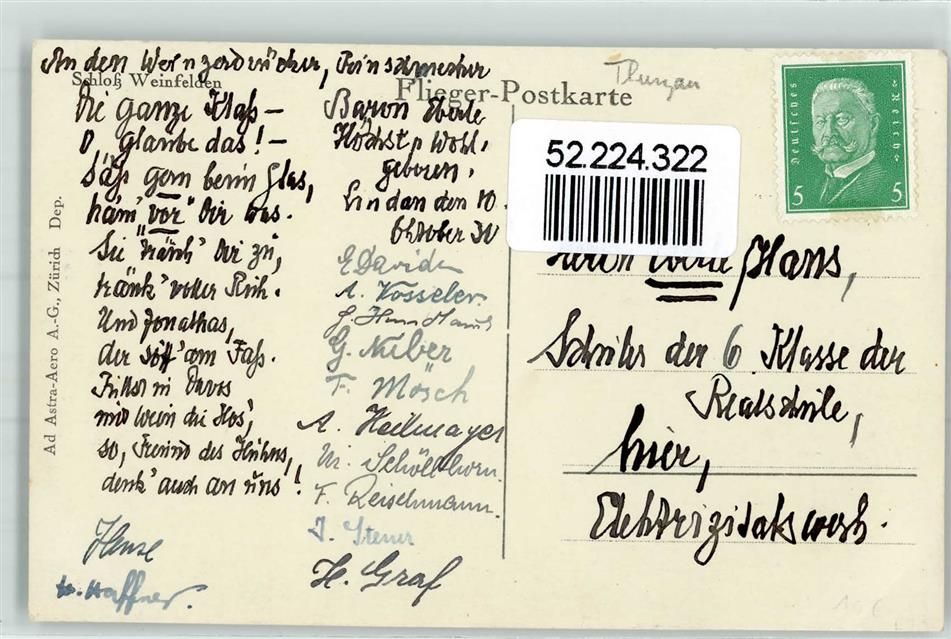 An den Weinzerdrücker, Feinschmecker
Schloß Weinfelden
Die ganze Klaß –
O glaube das! –
Säß gern beim Glas,
käm' "vor" Dir was.
Sie "tränk" Dir zu,
tränk' voller Ruh.
Und Jonathas,
der söff am Faß.
Füllst in Davos
mit Wein die Hos',
so, Freund des Huhns,
denk' auch an uns!
Hense
W. Haffner.
Baron Eberle
Höchst, Wohl,
geboren,
Lindau den 10.
Oktober 30
E. David
A. Vosseler.
G. Nuber
F. Mösch
A. Heilmayer
M. Schöllhorn
F. Reischmann.
J. Sterner
H. Graf
Flieger-Postkarte
Thurgau
Deutsches Reich
5 5
52.224.322
Herrn Eberle Hans,
Schüler der 6 Klasse der
Realschule,
hier,
Elektrizitätswerk.
Ad Astra-Aero A.-G., Zürich Dep.